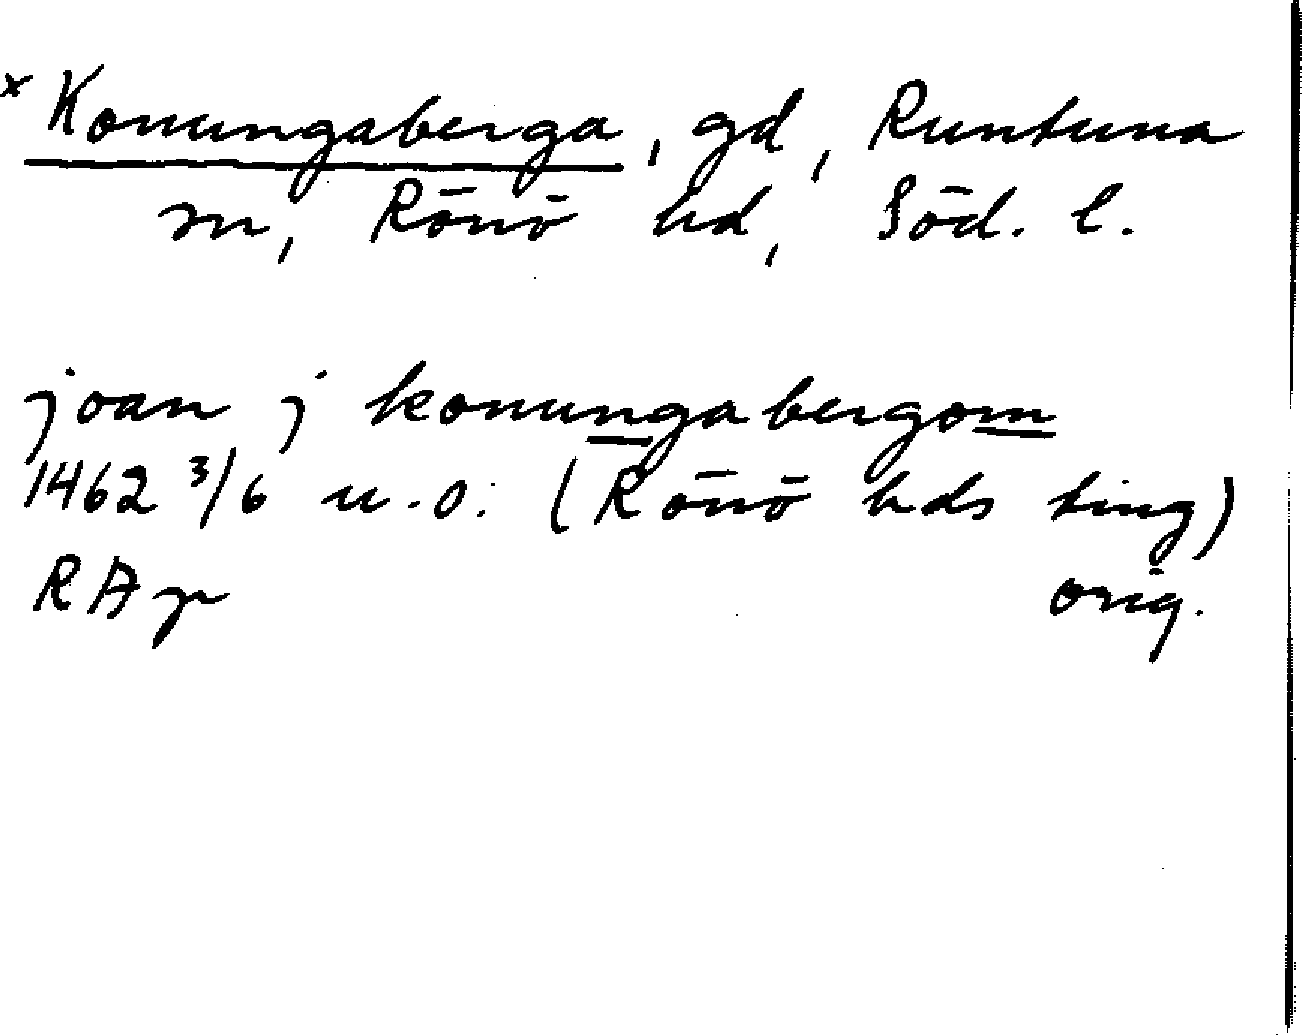 × Konungaberga, gd, Runtuna
sn, Rönö hd, Söd. l.
joan j konungabergom
1462 3/6 u.o. (Rönö hds ting)
RAp orig.